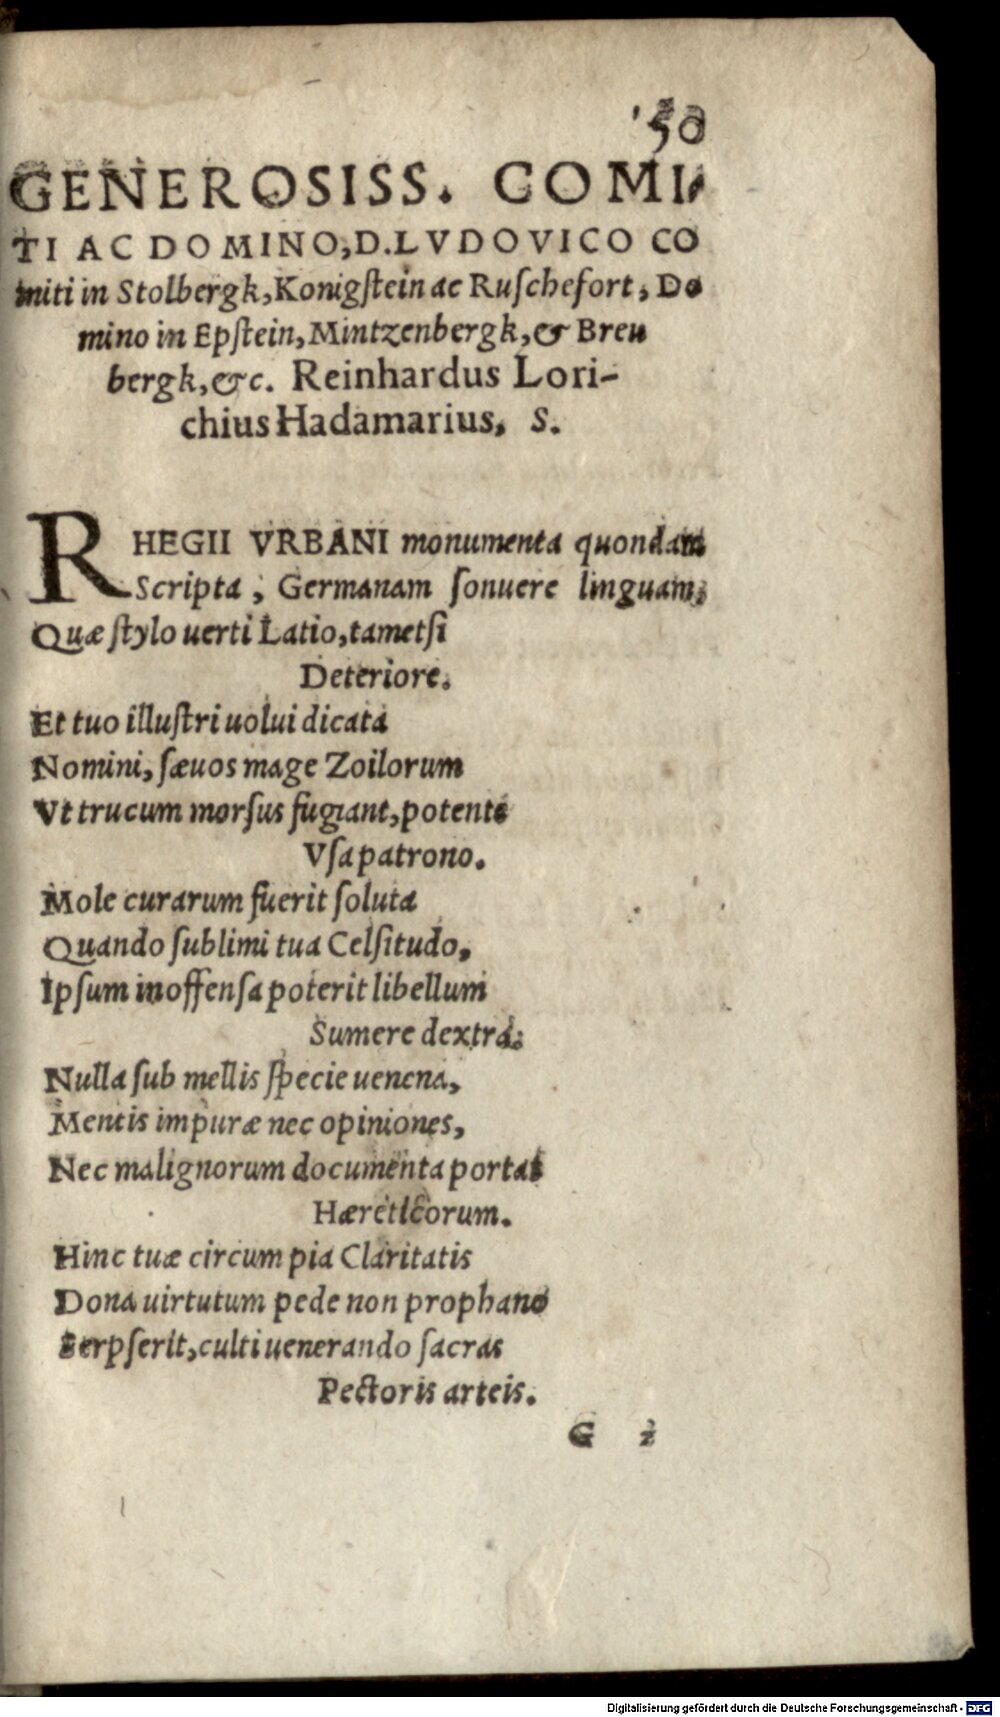 50
GENEROSISS. COMI-
TI AC DOMINO, D. LVDOVICO CO
miti in Stolbergk, Konigſtein ac Ruſchefort, Do
mino in Epſtein, Mintzenbergk, & Breu
bergk, &c. Reinhardus Lori-
chius Hadamarius, S.
RHEGII VRBANI monumenta quondam
Scripta, Germanam ſonuere linguam,
Quæ ſtylo uerti Latio, tametſi
Deteriore.
Et tuo illuſtri uolui dicata
Nomini, ſæuos mage Zoilorum
Vt trucum morſus fugiant, potente
Vſa patrono.
Mole curarum fuerit ſoluta
Quando ſublimi tua Celſitudo,
Ipſum inoffenſa poterit libellum
Sumere dextra.
Nulla ſub mellis ſpecie uenena,
Mentis impuræ nec opiniones,
Nec malignorum documenta portat
Hæreticorum.
Hinc tuæ circum pia Claritatis
Dona uirtutum pede non prophano
Serpſerit, culti uenerando ſacras
Pectoris arteis.
G 2
Digitalisierung gefördert durch die Deutsche Forschungsgemeinschaft - DFG